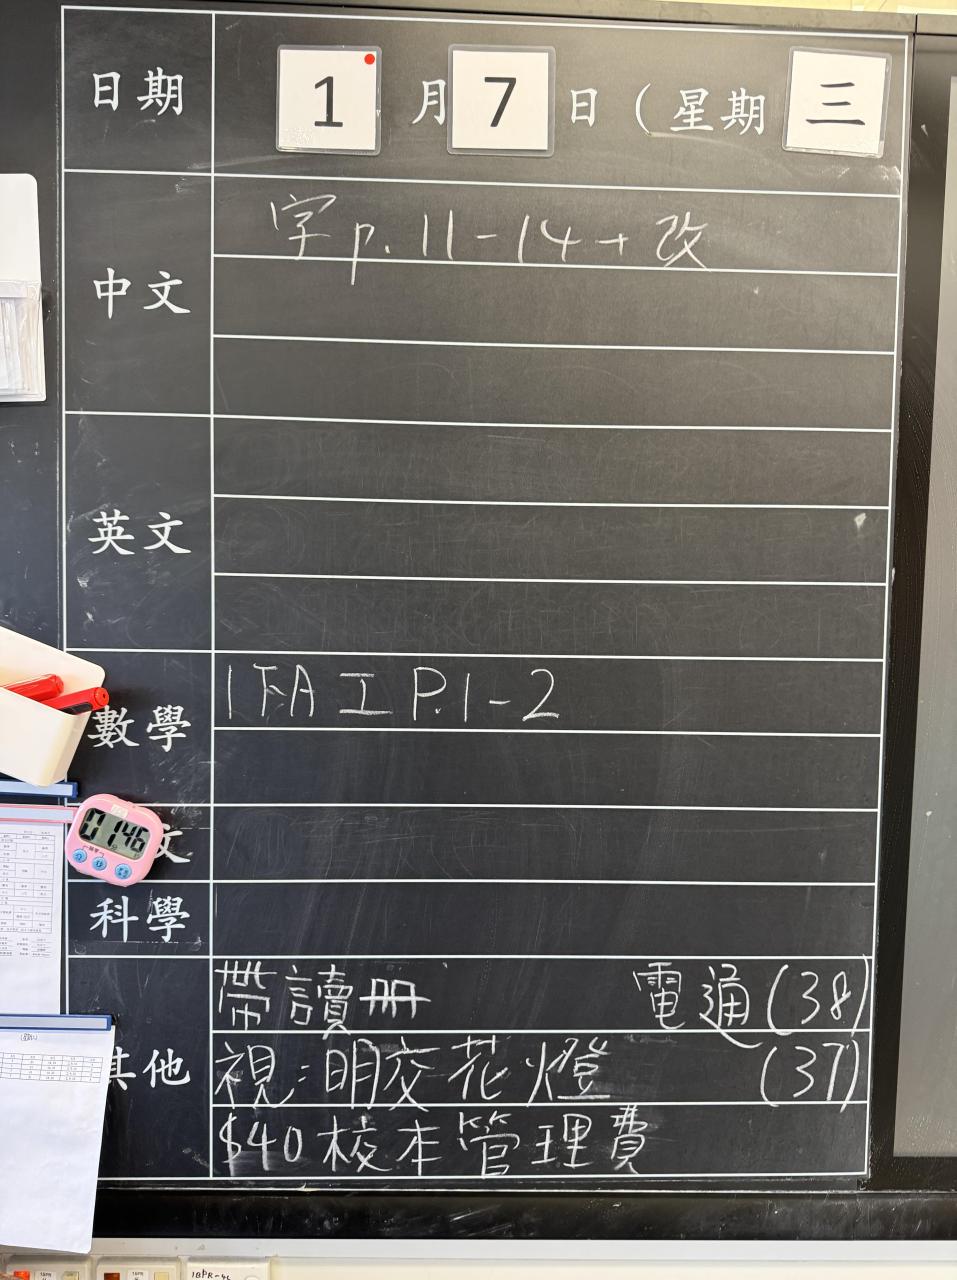 日期 1月7日（星期三
中文 字p.11-14+改
英文
數學 1下A工 P.1-2
文
科學
其他 帶讀冊 電通(38)
視:明交花燈 (37)
$40校本管理費
01 46
1BPR-4L